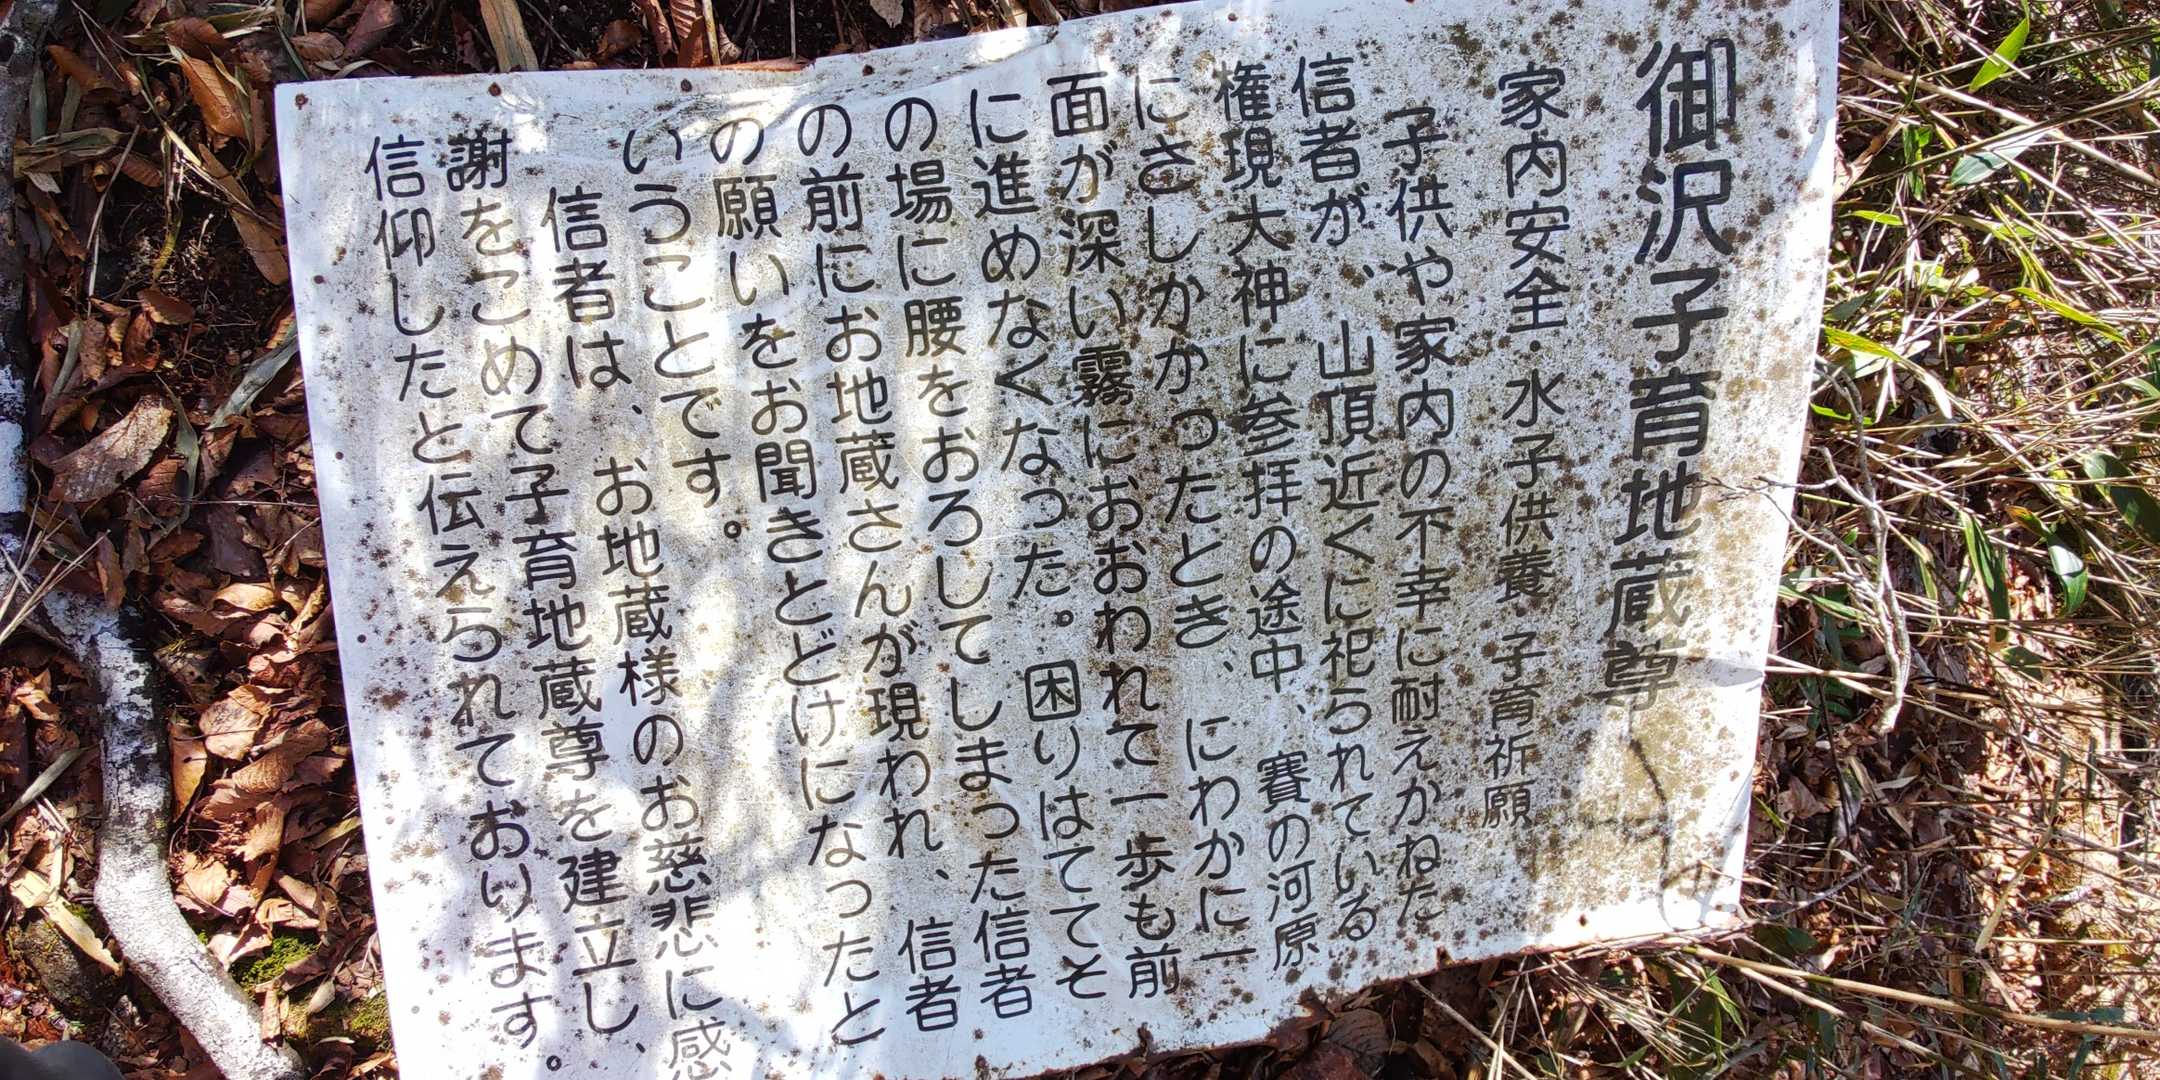 御沢子育地蔵尊
家内安全・水子供養・子育祈願
子供や家内の不幸に耐えかねた
信者が、山頂近くに祀られている
権現大神に参拝の途中、賽の河原
にさしかかったとき、にわかに一
面が深い霧におおわれて一歩も前
に進めなくなった。困りはててそ
の場に腰をおろしてしまった信者
の前にお地蔵さんが現われ、信者
の願いをお聞きとどけになったと
いうことです。
信者は、お地蔵様のお慈悲に感
謝をこめて子育地蔵尊を建立し、
信仰したと伝えられております。